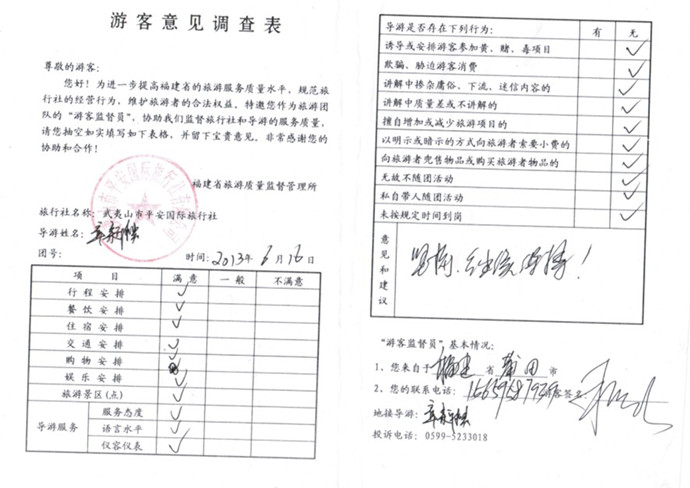 游客意见调查表
尊敬的游客:
您好!为进一步提高福建省的旅游服务质量水平,规范旅
行社的经营行为,维护旅游者的合法权益。特邀您作为旅游团
队的“游客监督员”,协助我们监督旅行社和导游的服务质量,
请您抽空如实填写如下表格,并留下宝贵意见。非常感谢您的
协助和合作!
福建省旅游质量监督管理所
旅行社名称:武夷山市平安国际旅行社
导游姓名:
团号: 时间:2013年6月16日
项 目 满 意 一 般 不满意
行 程 安 排 ✓
餐 饮 安 排 ✓
住 宿 安 排 ✓
交 通 安 排 ✓
购 物 安 排
娱 乐 安 排 ✓
旅游景区(点) ✓
导游服务
服务态度 ✓
语言水平 ✓
仪容仪表 ✓
导游是否存在下列行为: 有 无
诱导或安排游客参加黄、赌、毒项目 ✓
欺骗、胁迫游客消费 ✓
讲解中掺杂庸俗、下流、迷信内容的 ✓
讲解中质量差或不讲解的 ✓
擅自增加或减少旅游项目的 ✓
以明示或暗示的方式向旅游者索要小费的 ✓
向旅游者兜售物品或购买旅游者物品的 ✓
无故不随团活动 ✓
私自带人随团活动 ✓
未按规定时间到岗 ✓
意见和建议
“游客监督员”基本情况:
1、您来自于福建省莆田市
2、您的联系电话: 游客签名:
地接导游:
投诉电话:0599-5233018